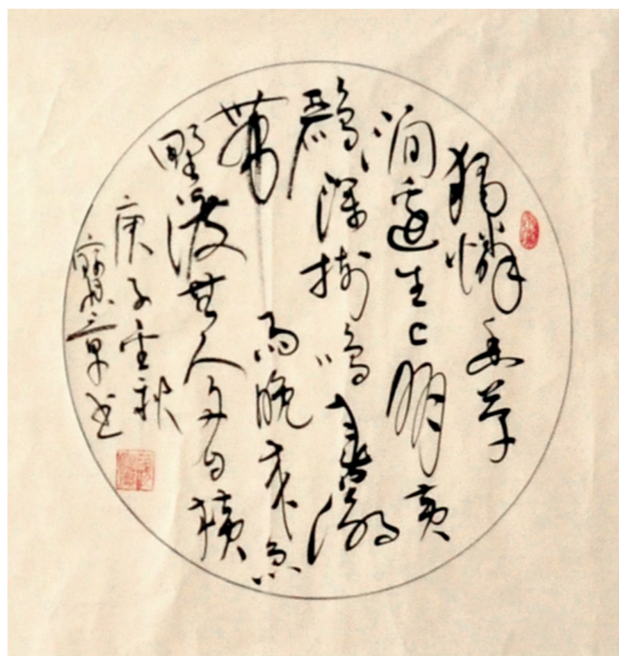 獨憐幽草
澗邊生上有黄
鸝深樹鳴春潮
帶雨晚来急
野渡無人舟自横
庚子秋
章书